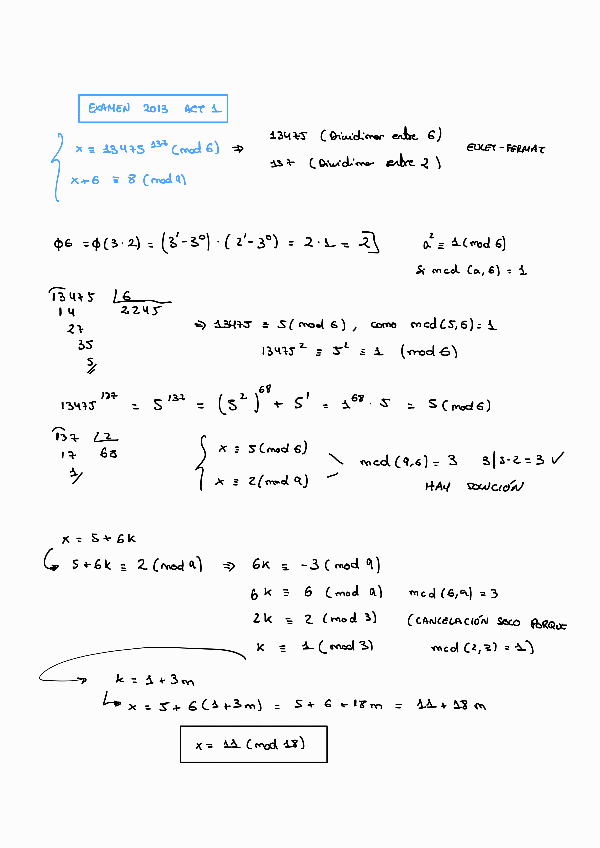 EXAMEN 2013 ACT 1
x ≡ 13475^137 (mod 6) ⇒ 13475 (Dividimos entre 6)
137 (Dividimos entre 2)
EULER-FERMAT
x+6 ≡ 8 (mod 9)
φ6 = φ(3·2) = (3^1-3^0)·(2^1-3^0) = 2·1 = 2
a^2 ≡ 1 (mod 6)
Si mcd (a,6) = 1
13475 6
14 2245
27
35
5
⇒ 13475 ≡ 5 (mod 6), como mcd(5,6)=1
13475^2 ≡ 5^2 ≡ 1 (mod 6)
13475^137 = 5^137 = (5^2)^68 + 5^1 = 1^68 · 5 = 5 (mod 6)
137 2
17 68
1
x ≡ 5 (mod 6)
x ≡ 2 (mod 9)
mcd (9,6) = 3 3|5-2=3 ✓
HAY SOLUCIÓN
x = 5+6k
5+6k ≡ 2 (mod 9) ⇒ 6k ≡ -3 (mod 9)
6k ≡ 6 (mod 9) mcd (6,9) = 3
2k ≡ 2 (mod 3) (CANCELACIÓN SOLO PORQUE
k ≡ 1 (mod 3) mcd (2,3) = 1)
k = 1+3m
x = 5+6(1+3m) = 5+6+18m = 11+18m
x = 11 (mod 18)